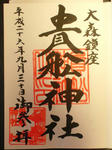 大森鎮座
貴舩神社
平成二十六年九月三十日御参拝